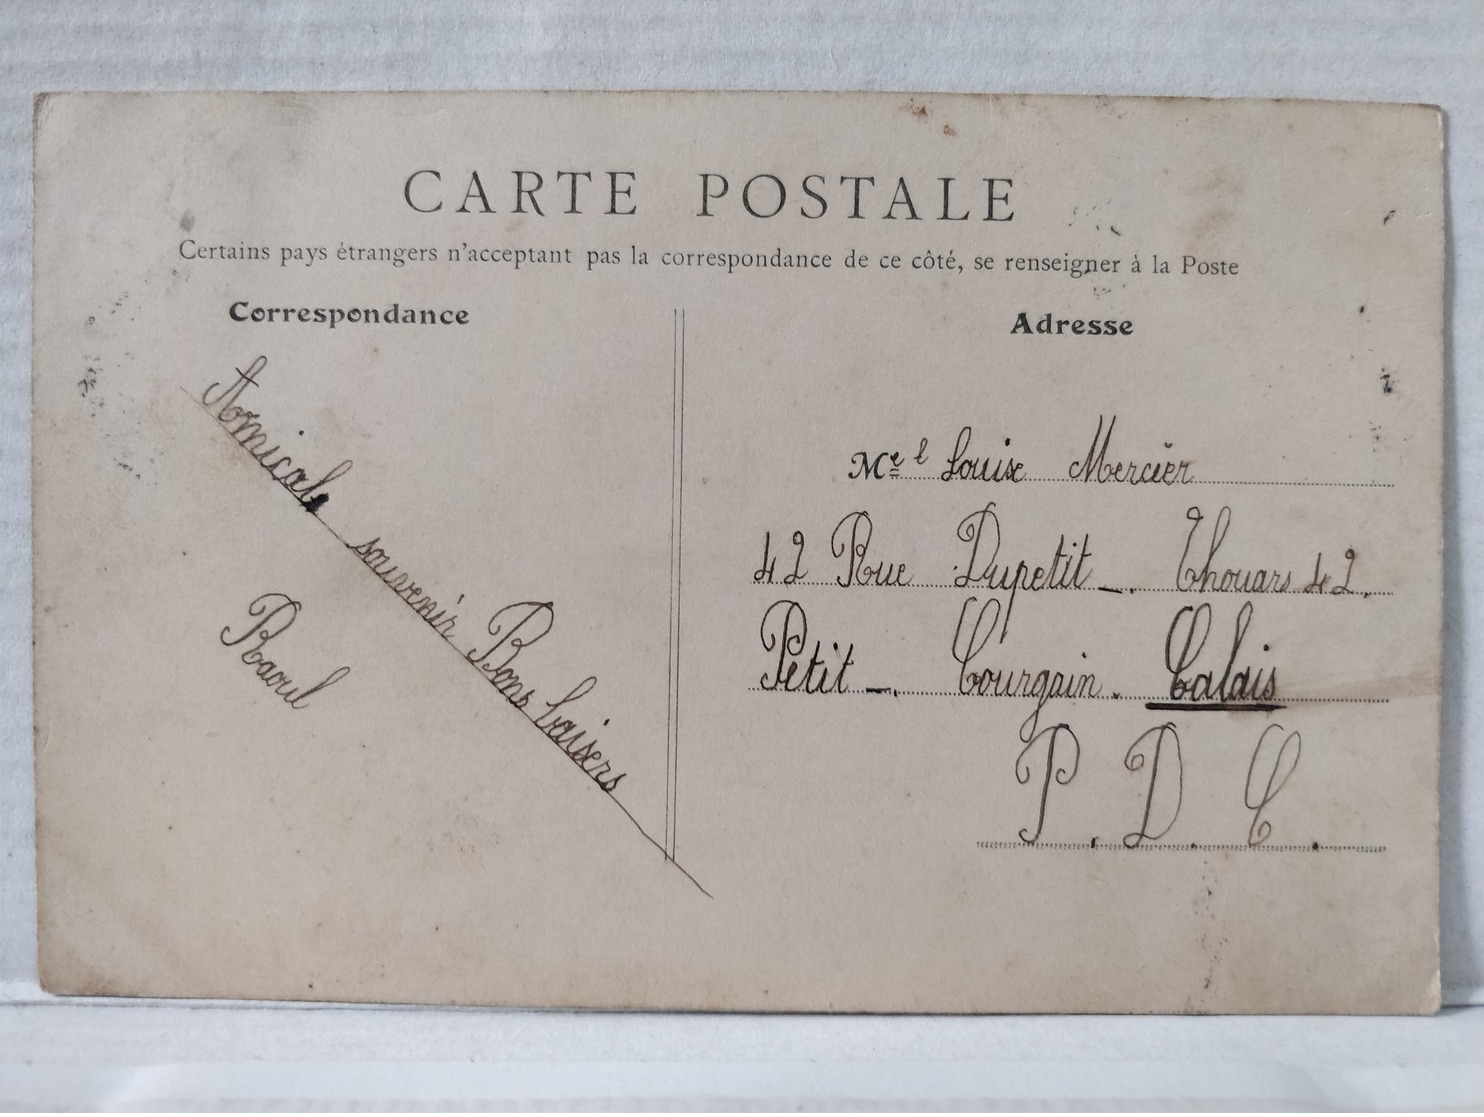 CARTE POSTALE
Certains pays étrangers n'acceptant pas la correspondance de ce côté, se renseigner à la Poste
Correspondance
Adresse
Amical souvenir Bons baisers
Raoul
Mel Louise Mercier
42 Rue Dupetit-. Thouars 42.
Petit-. Courgain. Calais
P. D. C.